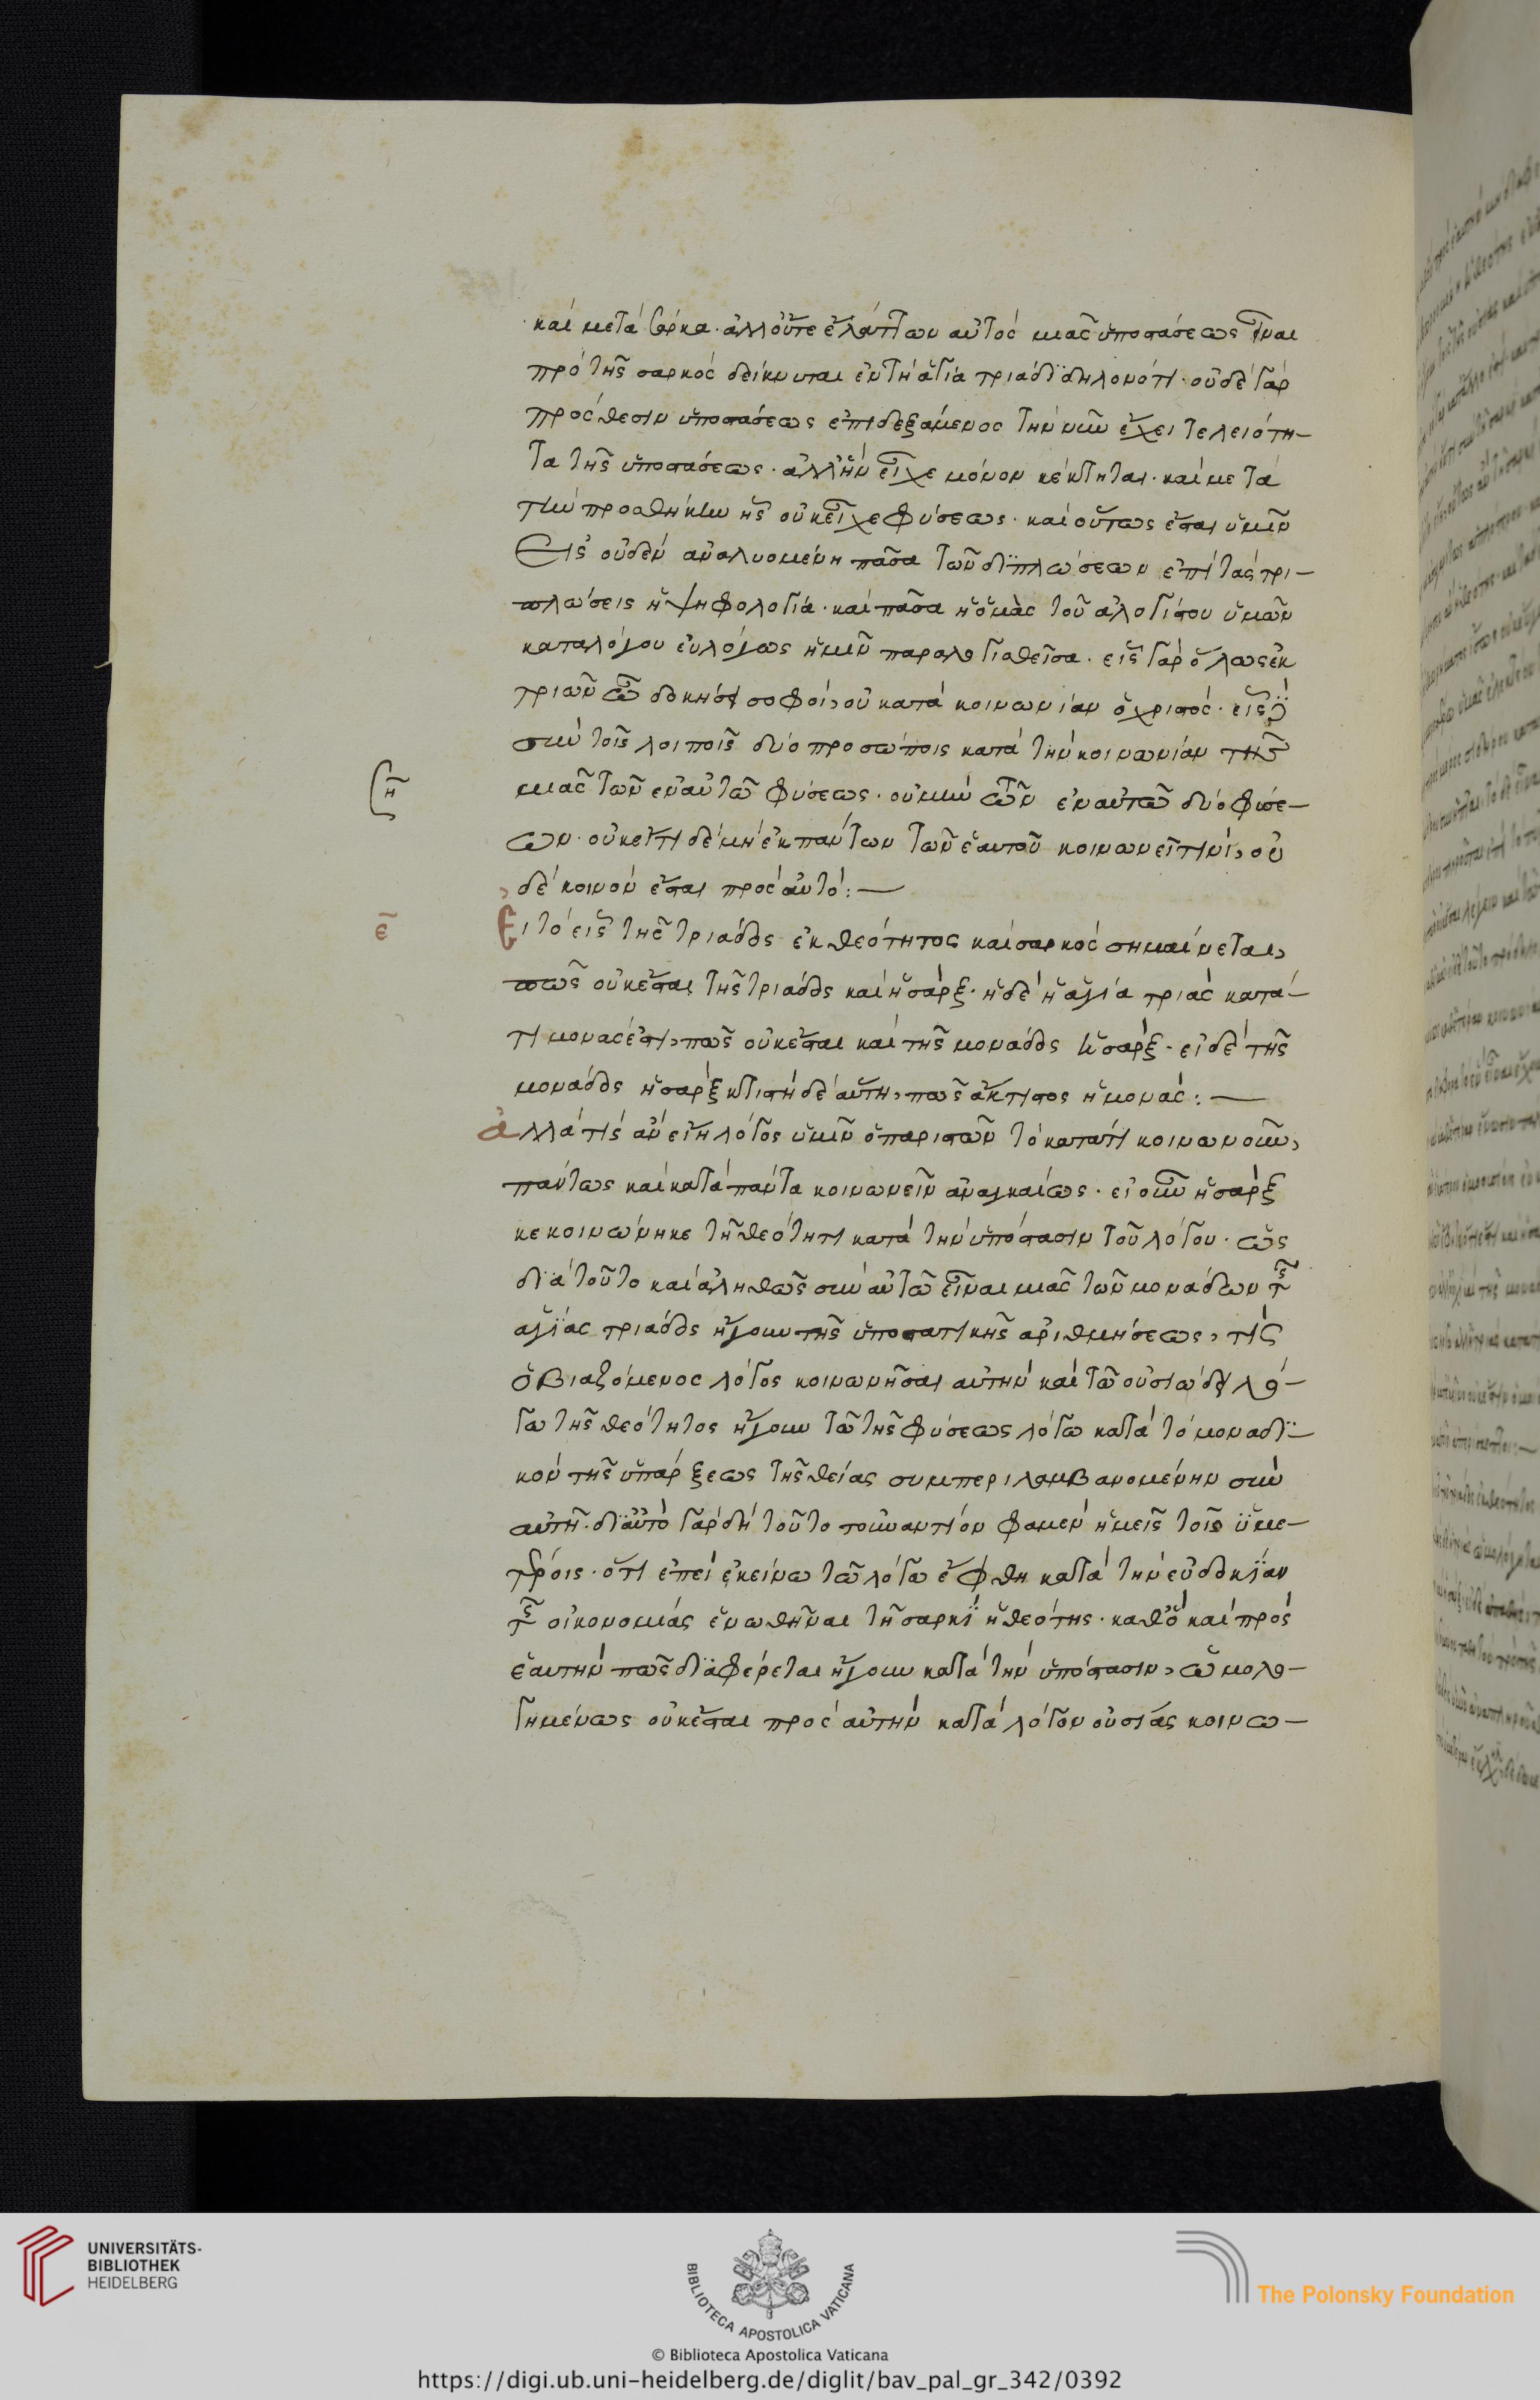 καὶ μετὰ σάρκα· ἀλλ' οὔτε ἐλάττων αὐτὸς μιᾶς ὑποστάσεως εἶναι
πρὸ τῆς σαρκὸς δείκνυται ἐν τῇ ἁγία τριάδϊ δηλονότι· οὐδὲ γὰρ
πρόσθεσιν ὑποστάσεως ἐπιδεξάμενος τὴν νῦν ἔχει τελειότη-
τα τῆς ὑποστάσεως· ἀλλ' ἣν εἶχε μόνον κέκτηται· καὶ μετὰ
τὴν προσθήκην ἧς οὐκ εἶχε φύσεως· καὶ οὕτως ἔσται ὑμῖν
εἰς οὐδὲν ἀναλυομένη πᾶσα τῶν δϊπλώσεων ἐπὶ τὰς τρι-
πλώσεις ἡ ψηφολογία· καὶ πᾶσα ἡ ὁμὰς τοῦ ἀλογίστου ὑμῶν
καταλόγου εὐλόγως ἡμῖν παραλογισθεῖσα· εἷς γὰρ ὅλως ἐκ
τριῶν ὦ δοκησί σοφοι, οὐ κατὰ κοινωνίαν ὁ χριστός· εἷς
σὺν τοῖς λοιποῖς δύο προσώποις κατὰ τὴν κοινωνίαν τῆς
μιᾶς τῶν ἐν αὐτῶ φύσεως· οὐ μὴν τῶν ἐν αὐτῶ δύο φύσε-
ων· οὐκέτι δὲ μὴ ἐκ πάντων τῶν ἑαυτοῦ κοινωνεῖ τινὶ, οὐ
δὲ κοινὸν ἔσται πρὸς αὐτό:—
η
ε
Εἰ τὸ εἷς τῆς τριάδος ἐκ θεότητος καὶ σαρκὸς σημαίνεται,
πῶς οὐκ ἔσται τῆς τριάδος καὶ ἡ σάρξ· ἡ δὲ ἡ ἁγία τριὰς κατά-
τι μονάς ἐστι, πῶς οὐκ ἔσται καὶ τῆς μονάδος ἡ σάρξ· εἰ δὲ τῆς
μονάδος ἡ σάρξ κτιστὴ δὲ αὕτη, πῶς ἄκτιστος ἡ μονάς:—
ἀλλὰ τίς ἂν εἴη λόγος ὑμῖν ὁ παριστῶν τὸ κατά τι κοινωνοῦν,
πάντως καὶ κατὰ πάντα κοινωνεῖν ἀναγκαίως· εἰ οὖν ἡ σάρξ
κεκοινώνηκε τῆ θεότητι κατὰ τὴν ὑπόστασιν τοῦ λόγου· ὡς
δϊὰ τοῦτο καὶ ἀληθῶς σὺν αὐτῶ εἶναι μιᾶς τῶν μονάδων τῆς
ἁγίας τριάδος ἤγουν τῆς ὑποστατικῆς ἀριθμήσεως, τίς
ὁ βιαζόμενος λόγος κοινωνῆσαι αὐτὴν καὶ τῶ οὐσιώδει λό-
γω τῆς θεότητος ἤγουν τῶ τῆς φύσεως λόγω κατὰ τὸ μοναδϊ-
κὸν τῆς ὑπάρξεως τῆς θείας συμπεριλαμβανομένην σὺν
αὐτῆ· δϊ' αὐτὸ γὰρ δὴ τοῦτο τοὐναντίον φαμὲν ἡμεῖς τοῖς ὑμε-
τέροις· ὅτι ἐπεὶ ἐκείνω τῶ λόγω ἔφθη κατὰ τὴν εὐδοκίαν
τῆς οἰκονομίας ἑνωθῆναι τῆ σαρκὶ ἡ θεότης· καθὸ καὶ πρὸς
ἑαυτὴν πῶς δϊαφέρεται ἤγουν κατὰ τὴν ὑπόστασιν, ὡμολο-
γημένως οὐκ ἔσται πρὸς αὐτὴν κατὰ λόγον οὐσίας κοινω-
UNIVERSITÄTS-
BIBLIOTHEK
HEIDELBERG
BIBLIOTECA APOSTOLICA VATICANA
The Polonsky Foundation
© Biblioteca Apostolica Vaticana
https://digi.ub.uni-heidelberg.de/diglit/bav_pal_gr_342/0392